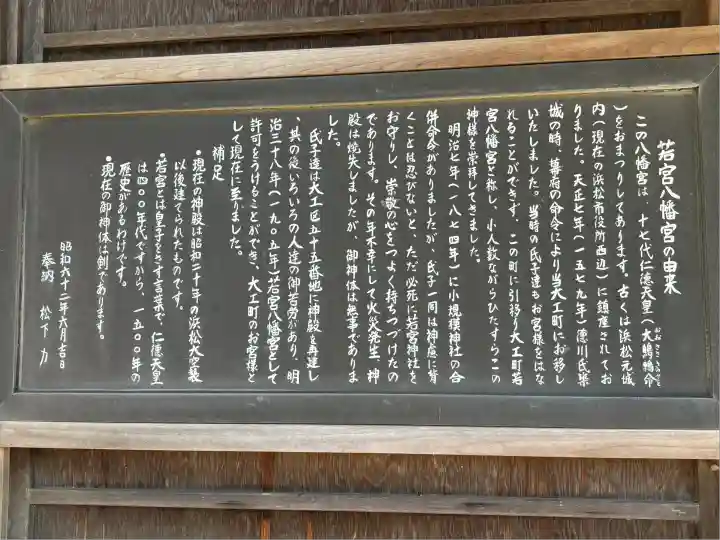 若宮八幡宮の由来
この八幡宮は、十七代仁徳天皇(大鷦鷯命
)をおまつりしてあります。古くは浜松元城
内(現在の浜松市役所西辺)に鎮座されてお
りました。天正七年(一五七九年)徳川氏築
城の時、幕府の命令により当大工町にお移し
いたしました。当時の氏子達もお宮様をはな
れることができず、この町に引移り大工町若
宮八幡宮と称し、小人数ながらひたすらこの
神様を崇拝してきました。
明治七年(一八七四年)に小規模神社の合
併命令がありましたが、氏子一同は神慮に背
くことは忍びないと、ただ必死に若宮神社を
お守りし、崇敬の心をつよく持ちつづけたの
であります。その年不幸にして火災発生、神
殿は焼失しましたが、御神体は無事でありま
した。
氏子達は大工区五十五番地に神殿を再建し
、其の後いろいろの人達の御苦労があり、明
治三十八年(一九〇五年)若宮八幡宮として
許可をうけることができ、大工町のお宮様と
して現在に至りました。
補足
•現在の神殿は昭和二十年の浜松大空襲
以後建てられたものです。
•若宮とは皇子をさす言葉で、仁徳天皇
は四〇〇年代ですから、一五〇〇年の
歴史があるわけです。
•現在の御神体は剣であります。
昭和六十二年六月吉日
奉納 松下力